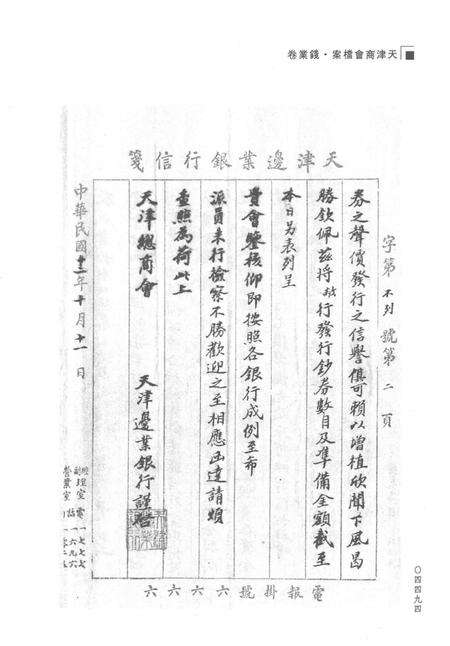 天津商會檔案·錢業卷
天津邊業銀行信箋
字第不列號第二頁
券之聲價發行之信譽俱可賴以增植欣聞下風曷
勝欽佩茲將敝行發行鈔券數目及準備金額截至
本日另表列呈
貴會鑒核仰即按照各銀行成例至希
派員來行檢察不勝歡迎之至相應函達請煩
查照為荷此上
天津總商會
天津邊業銀行謹啟
中華民國十三年十月十一日
電報掛號六六六六
〇四四九四